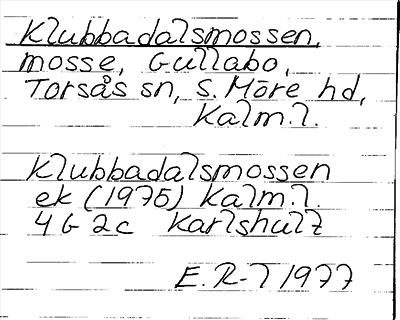 Klubbadalsmossen,
mosse, Gullabo,
Torsås sn, S. Möre hd,
Kalm.l.
Klubbadalsmossen
ek (1975) Kalm.l.
4G2c Karlshult
E.R-T 1977